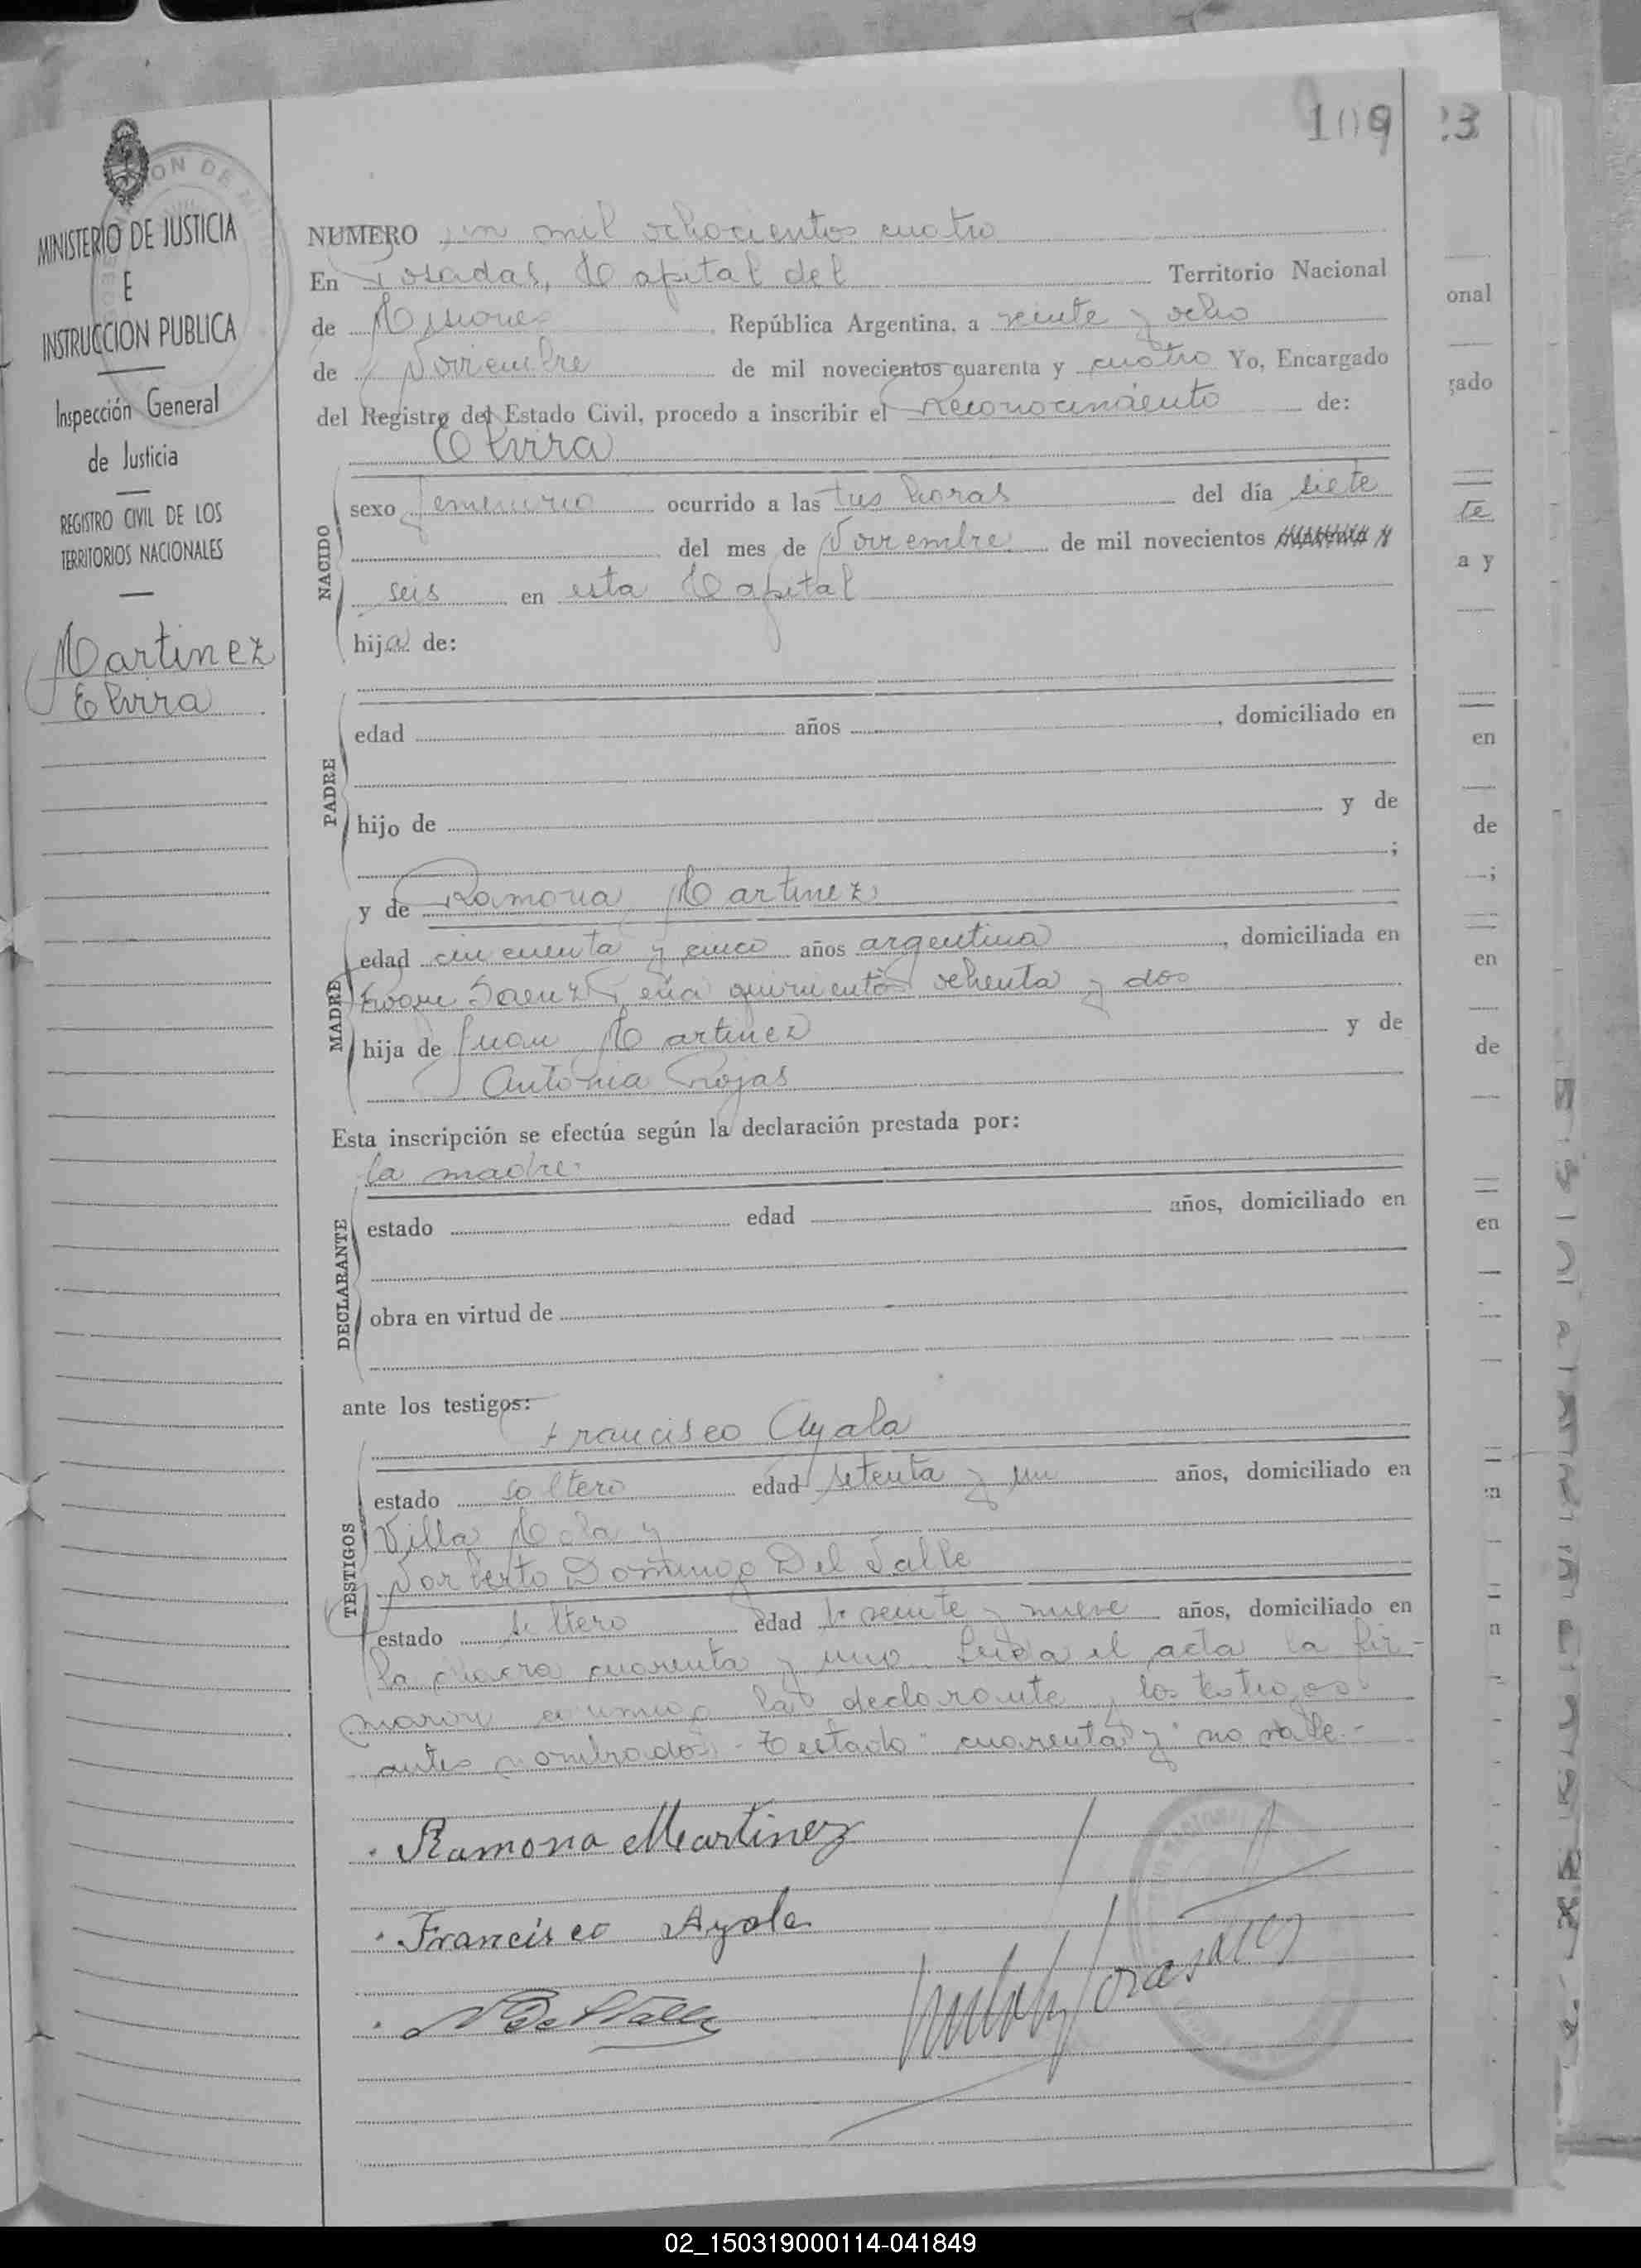 109
23
MINISTERIO DE JUSTICIA
E
INSTRUCCION PUBLICA
Inspección General
de Justicia
REGISTRO CIVIL DE LOS
TERRITORIOS NACIONALES
Martinez
Elvira
NUMERO un mil ochocientos cuatro
En Posadas, Capital del Territorio Nacional
de Misiones República Argentina, a veinte y ocho
de Noviembre de mil novecientos cuarenta y cuatro Yo, Encargado
del Registro del Estado Civil, procedo a inscribir el Reconocimiento de:
Elvira
NACIDO
sexo femenino ocurrido a las tres horas del día siete
del mes de Noviembre de mil novecientos cuarenta y
seis en esta Capital
hija de:
PADRE
edad años , domiciliado en
hijo de y de
;
y de Ramona Martinez
MADRE
edad cincuenta y cinco años argentina , domiciliada en
Roque Saenz Peña quinientos ochenta y dos
hija de Juan Martinez y de
Antonia Rojas
Esta inscripción se efectúa según la declaración prestada por:
la madre.
DECLARANTE
estado edad años, domiciliado en
obra en virtud de
ante los testigos:
Francisco Ayala
TESTIGOS
estado soltero edad setenta y un años, domiciliado en
Villa y
Norberto Domingo Del Valle
estado soltero edad veinte y nueve años, domiciliado en
la chacra cuarenta y uno. Leida el acta la fir-
maron conmigo la declarante y los testigos
antes nombrados.- Testado "cuarenta y" no vale.-
Ramona Martinez
Francisco Ayala
N Del Valle
onal
gado
te
a y
en
de
;
en
de
en
02_150319000114-041849